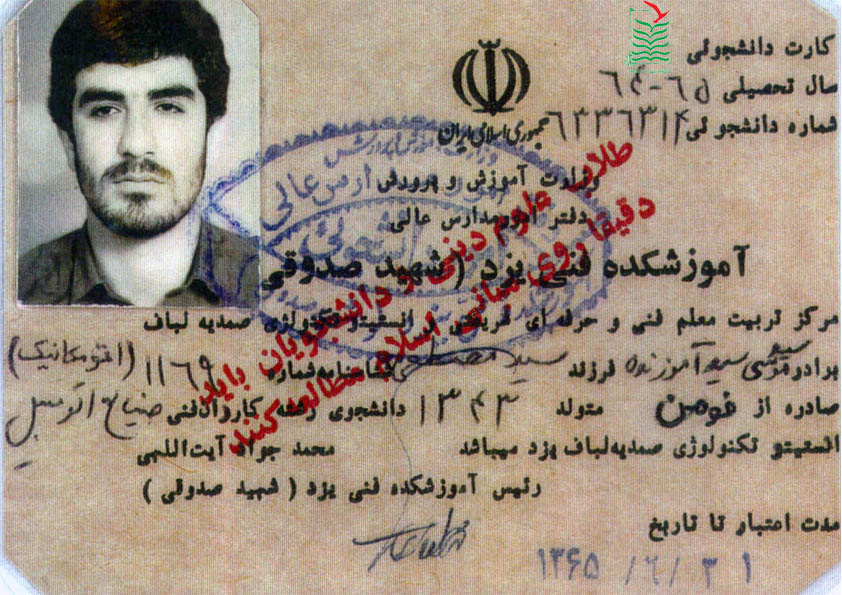 کارت دانشجوئی
سال تحصیلی ۶۵-۶۴
شماره دانشجوئی ۶۳۳۶۳۱۴
جمهوری اسلامی ایران
وزارت آموزش و پرورش
دفتر امور مدارس عالی
آموزشکده فنی یزد ( شهید صدوقی
مرکز تربیت معلم فنی و حرفه ای شریعتی و انستیتو تکنولوژی صمدیه لباف
برادر سید آموزنده فرزند سید مصطفی شناسنامه شماره ۱۱۶۹ (اتومکانیک)
صادره از فومن متولد ۱۳۴۳ دانشجوی رشته کاروان فنی صنایع اتومبیل
انستیتو تکنولوژی صمدیه لباف یزد میباشد محمد جواد آیت‌اللهی
رئیس آموزشکده فنی یزد ( شهید صدوقی )
مدت اعتبار تا تاریخ
۱۳۶۵/۶/۳۱
طلاب علوم دینی و دانشجویان باید
دقیقا روی مبانی اسلام مطالعه کنند